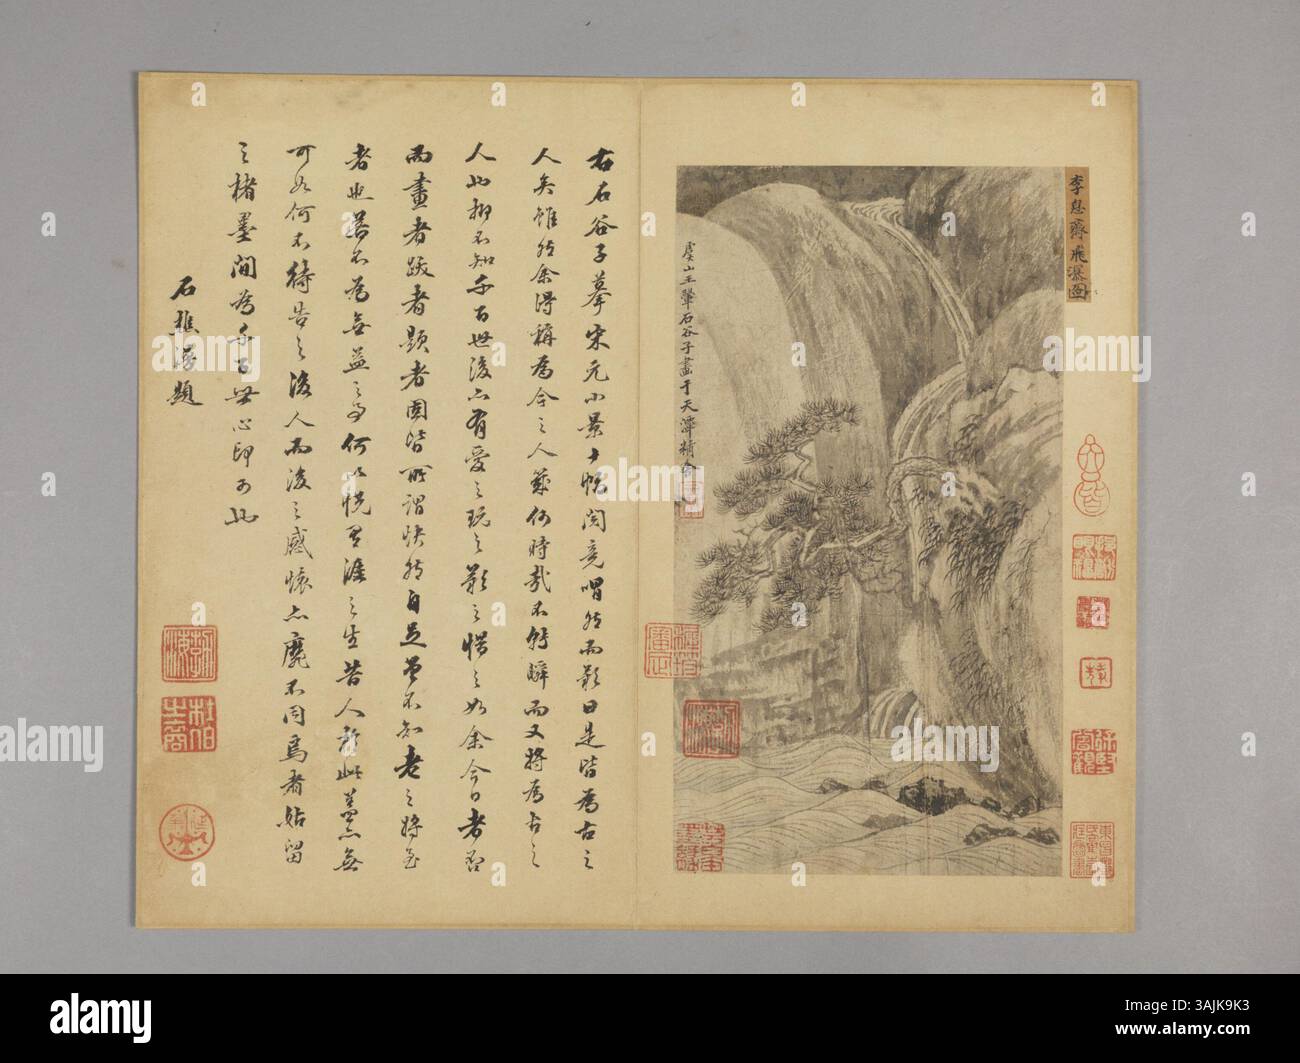 李息齋飛瀑圖
虞山王翬石谷子畫于天潭精舍
右石谷子摹宋元小景十幀閱竟喟然而歎曰是皆為古之
人矣雖然余得稱為今之人幾何時哉不轉瞬而又將為古之
人此抑不知千百世後亦有愛之玩之歎之惜之如余今日者否
而畫者跋者題者固皆所謂快然自足曾不知老之將至
者也若不為無益之事何以悅有涯之生昔人於此蓋亦無
可如何不待告之後人而後之感懷亦靡不同焉者姑留
之楮墨間為千百世心印可也
石樵題
alamy
Image ID: 3AJK9K3
www.alamy.com